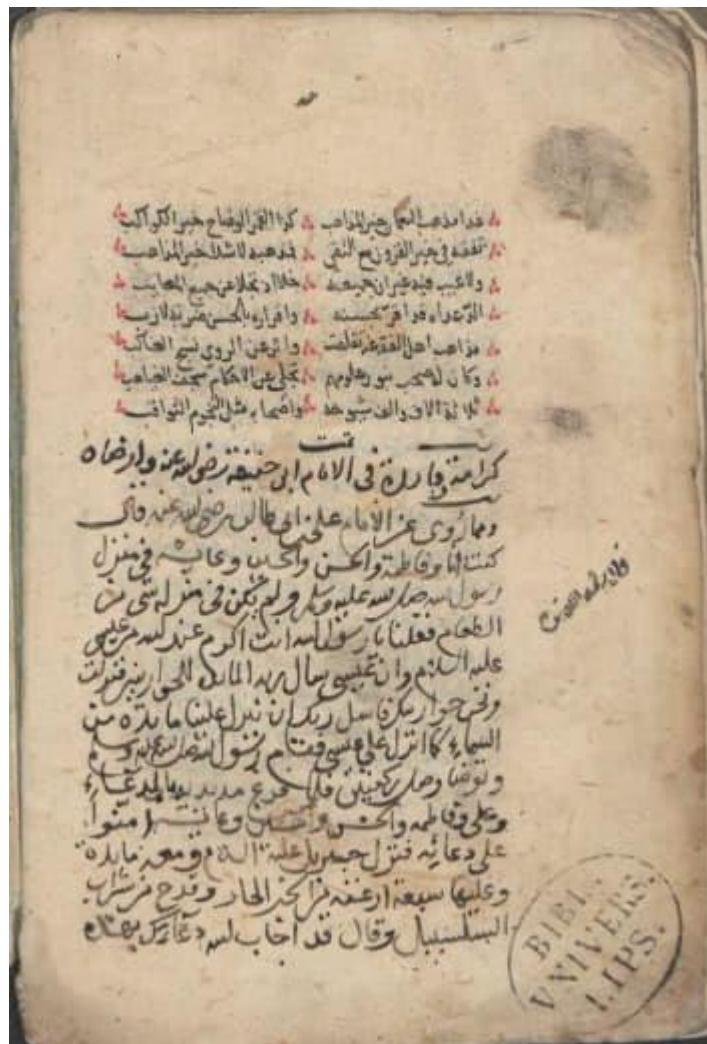 غدا مذهب النعمان خير المذاهب كذا القمر الوضاح خير الكواكب
تفقه في خير القرون مع التقى فمذهبه لا شك خير المذاهب
ولا عيب فيه غير ان جميعه خلا اذ تخلا عن جميع المعايب
مذاهب اهل الفقه عنه تقلصت واين عن الرومي نسج العناكب
وكان له صحب بنور علومهم تجلى عن الاحكام سجف الغياهب
ثلاثة الاف والف شيوخه واصحابه مثل النجوم الثواقب
تمت
كرامة وفايدة في الامام ابى حنيفة رضى الله عنه وارضاه
ومما روى عن الامام على بن ابى طالب رضى الله عنه قال
كنت انا وفاطمة والحسن والحسين وعايشه في منزل
رسول الله صلى الله عليه وسلم ولم يكن في منزله شى من
الطعام فقلنا يا رسول الله انت اكرم عند الله من عيسى
عليه السلام وان عيسى سال ربه المايده للحواريين فنزلت
ونحن حواريك فاسل ربك ان ينزل علينا مايده من
السماء كما انزل على عيسى فقام رسول الله صلى الله عليه وسلم
وتوضا وصلى ركعتين فلما فرغ مد يديه بالدعاء
وعلى وفاطمه والحسن والحسين وعايشه امنوا
على دعائه فنزل جبريل عليه السلام ومعه مايدة
وعليها سبعة ارغفه من الخبز الحار وقدح من شراب
السلسبيل وقال قد اجاب الله دعاك
BIBL.
VNIVERS.
LIPS.